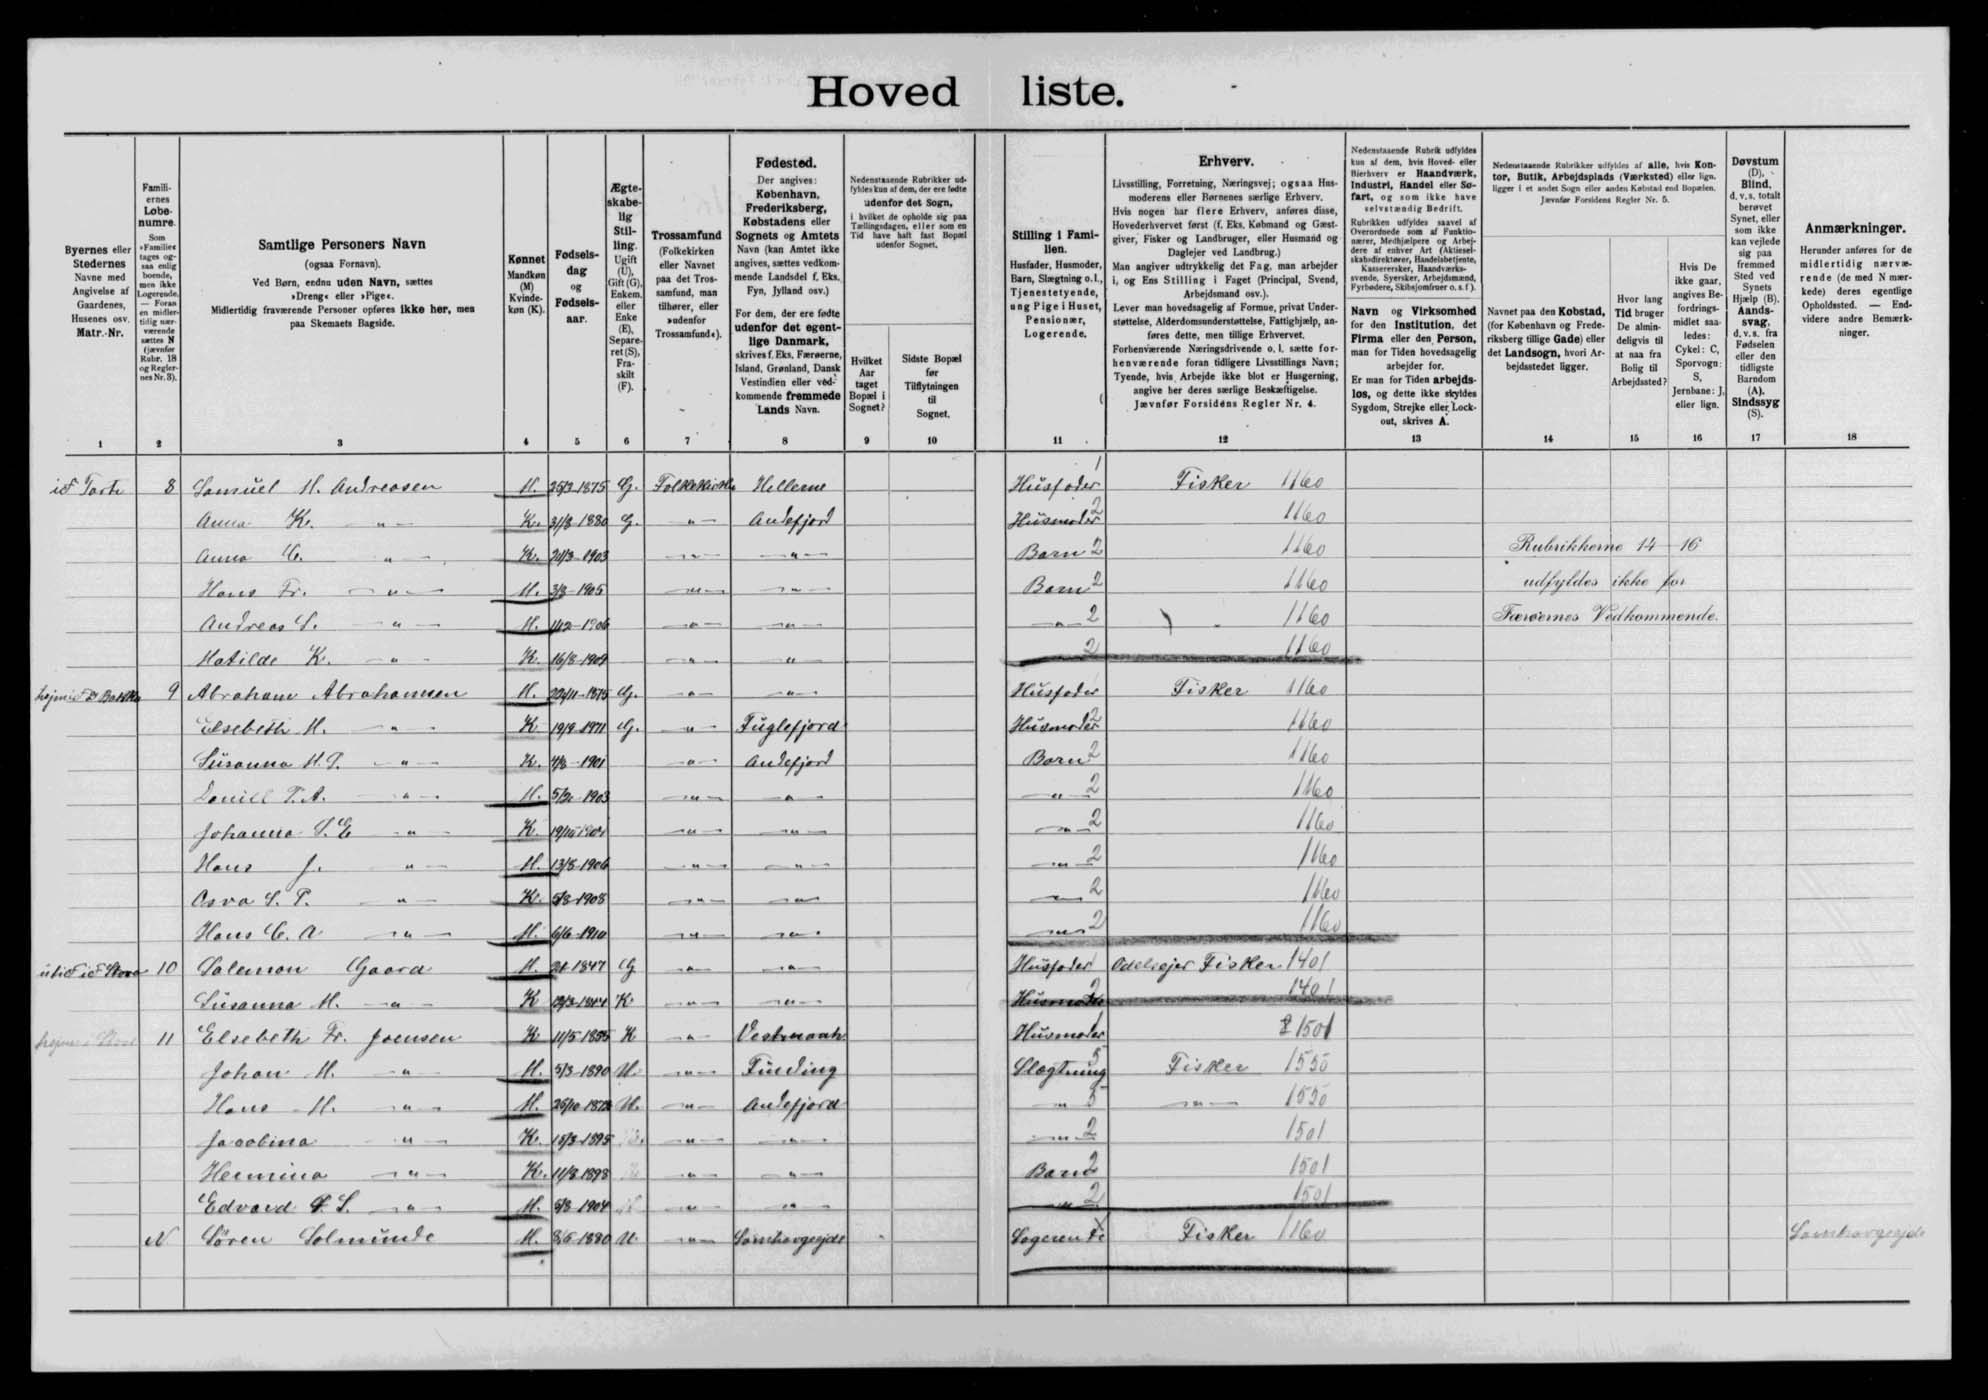 Hoved liste.
Byernes eller Stedernes Navne med Angivelse af Gaardenes, Husenes osv. Matr.-Nr.
Familiernes Løbenumre. Som »Familie« tages ogsaa enlig boende, men ikke Logerende. — Foran en midlertidig nærværende sættes N (jævnfør Rubr. 18 og Reglernes Nr. 3).
Samtlige Personers Navn
(ogsaa Fornavn).
Ved Børn, endnu uden Navn, sættes
»Dreng« eller »Pige«.
Midlertidig fraværende Personer opføres ikke her, men
paa Skemaets Bagside.
Kønnet Mandkøn (M) Kvindekøn (K).
Fødselsdag og Fødselsaar.
Ægteskabelig Stilling. Ugift (U), Gift (G), Enkem. eller Enke (E), Separeret (S), Fraskilt (F).
Trossamfund (Folkekirken eller Navnet paa det Trossamfund, man tilhører, eller »udenfor Trossamfund«).
Fødested.
Der angives: København, Frederiksberg, Købstadens eller Sognets og Amtets Navn (kan Amtet ikke angives, sættes vedkommende Landsdel f. Eks. Fyn, Jylland osv.)
For dem, der ere fødte udenfor det egentlige Danmark, skrives f. Eks. Færøerne, Island, Grønland, Dansk Vestindien eller vedkommende fremmede Lands Navn.
Nedenstaaende Rubrikker udfyldes kun af dem, der ere fødte udenfor det Sogn, i hvilket de opholde sig paa Tællingsdagen, eller som en Tid have haft fast Bopæl udenfor Sognet.
Hvilket Aar taget Bopæl i Sognet?
Sidste Bopæl før Tilflytningen til Sognet.
Stilling i Familien.
Husfader, Husmoder, Barn, Slægtning o. l., Tjenestetyende, ung Pige i Huset, Pensionær, Logerende.
Erhverv.
Livsstilling, Forretning, Næringsvej; ogsaa Husmoderens eller Børnenes særlige Erhverv.
Hvis nogen har flere Erhverv, anføres disse, Hovederhvervet først (f. Eks. Købmand og Gæstgiver, Fisker og Landbruger, eller Husmand og Daglejer ved Landbrug.)
Man angiver udtrykkelig det Fag, man arbejder i, og Ens Stilling i Faget (Principal, Svend, Arbejdsmand osv.).
Lever man hovedsagelig af Formue, privat Understøttelse, Alderdomsunderstøttelse, Fattighjælp, anføres dette, men tillige Erhvervet.
Forhenværende Næringsdrivende o. l. sætte forhenværende foran tidligere Livsstillings Navn; Tyende, hvis Arbejde ikke blot er Husgerning, angive her deres særlige Beskæftigelse.
Jævnfør Forsidens Regler Nr. 4.
Nedenstaaende Rubrik udfyldes kun af dem, hvis Hoved- eller Bierhverv er Haandværk, Industri, Handel eller Søfart, og som ikke have selvstændig Bedrift.
Rubrikken udfyldes saavel af Overordnede som af Funktionærer, Medhjælpere og Arbejdere af enhver Art (Aktieselskabsdirektører, Handelsbetjente, Kasserersker, Haandværkssvende, Syersker, Arbejdsmænd, Fyrbødere, Skibsjomfruer o. s. f.).
Navn og Virksomhed for den Institution, det Firma eller den Person, man for Tiden hovedsagelig arbejder for.
Er man for Tiden arbejdsløs, og dette ikke skyldes Sygdom, Strejke eller Lockout, skrives A.
Nedenstaaende Rubrikker udfyldes af alle, hvis Kontor, Butik, Arbejdsplads (Værksted) eller lign. ligger i et andet Sogn eller anden Købstad end Bopælen.
Jævnfør Forsidens Regler Nr. 5.
Navnet paa den Købstad, (for København og Frederiksberg tillige Gade) eller det Landsogn, hvori Arbejdsstedet ligger.
Hvor lang Tid bruger De almindeligvis til at naa fra Bolig til Arbejdssted?
Hvis De ikke gaar, angives Befordringsmidlet saaledes: Cykel: C, Sporvogn: S, Jernbane: J, eller lign.
Døvstum (D), Blind, d. v. s. totalt berøvet Synet, eller som ikke kan vejlede sig paa fremmed Sted ved Synets Hjælp (B). Aandssvag, d. v. s. fra Fødselen eller den tidligste Barndom (A). Sindssyg (S).
Anmærkninger.
Herunder anføres for de midlertidig nærværende (de med N mærkede) deres egentlige Opholdssted. — Endvidere andre Bemærkninger.
1 2 3 4 5 6 7 8 9 10 11 12 13 14 15 16 17 18
8 Samuel M. Andreasen M. 25/3-1875 G. Folkekirken Hellerne Husfader 1 Fisker 1160
Anna K. -"- K. 31/8-1880 G. -"- Andefjord Husmoder 2 1160
Anna C. -"- K. 21/3-1903 -"- -"- Barn 2 1160 Rubrikkerne 14-16
Hans Fr. -"- M. 3/3-1905 -"- -"- Barn 2 1160 udfyldes ikke for
Andreas S. -"- M. 1906 -"- -"- -"- 2 1160 Færøernes Vedkommende.
Matilde K. -"- K. 16/8-1909 -"- -"- 2 1160
9 Abraham Abrahamsen M. 22/11-1875 G. -"- -"- Husfader Fisker 1160
Elsebeth M. -"- K 19/9-1971 G. -"- Fuglefjord Husmoder 2 1160
Susanna M.P. -"- K. 1901 -"- Andefjord Barn 2 1160
Daniel P.A. -"- M. 1903 -"- -"- -"- 2 1160
Johanna S.E -"- K. -"- -"- -"- 2 1160
Hans J. -"- M. 13/8-1906 -"- -"- -"- 2 1160
Osva S. P. -"- K. 5/8-1908 -"- -"- -"- 2 1160
Hans C. A -"- M. 6/6-1910 -"- -"- -"- 2 1160
10 Salemon Gaard M. 1847 G -"- -"- Husfader 1 Odelsejer Fisker 1401
Susanna M. -"- K -"- -"- Husmoder 2 1401
11 Elsebeth Fr. Joensen K 11/5-1855 -"- Vestmanh. Husmoder 1 1501
Johan M. -"- M. 5/3-1890 U. -"- Funding Slægtning 5 Fisker 1550
Hans M. -"- M. U. -"- Andefjord -"- 5 -"- 1550
Jacobina -"- K. 15/3-1895 -"- -"- -"- 2 1501
Hermina -"- K. 11/8-1898 -"- -"- Barn 2 1501
Edvard S. -"- M. 5/8-1904 -"- -"- -"- 2 1501
N Søren Solmunde M. 1880 U. -"- Lamhavgejde Logerende Fisker 1160 Lamhavgejde